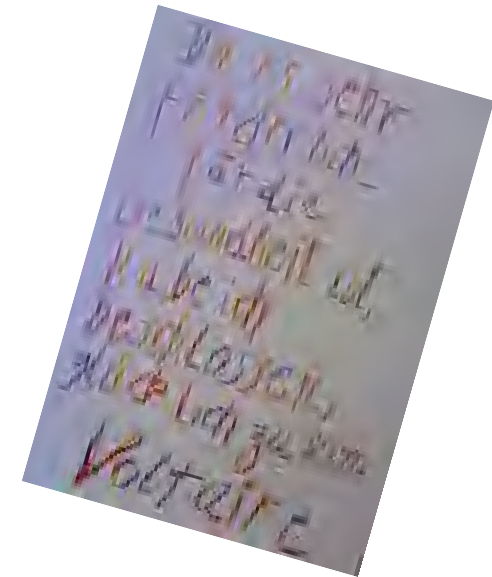 Da es sehr
förderlich
für die
Gesundheit ist,
habe ich
beschlossen,
glücklich zu sein
Voltaire